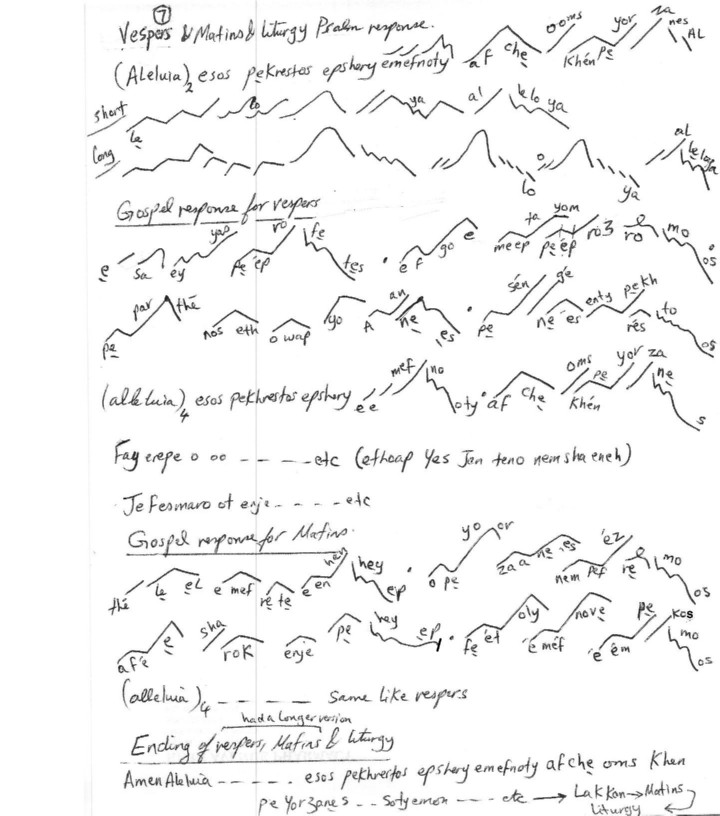 7
Vespers & Matins & Liturgy Psalm response.
(Aleluia)2 esos pekrestos epshery emefnoty af che ooms Khén pe yor za nes AL
short le lo ya al le lo ya
long lo o ya al le lo ya
Gospel response for vespers
e sa ey yas pe 'ep ro fe tes . ef go e meep ta pe'ep yom ro3 ro e mo os
pe par thé nos eth o wap yo A an ne es . pe sén gé ne es enty pekh rés to os
(alleluia)4 esos pekhrestos epshery e e mef no oty . af che oms Khén pe yor za ne s
Fay erepe o oo - - - - - etc (ethoap Yes Jen teno nem sha eneh)
Je fesmaro ot enje - - - - etc
Gospel response for Matins.
thé le el e mef re te e en hen hey ep . o pe yo or zaa ne es nem pef 'ez re e mo os
af'e e sha rok enje pe hey ep . fe'et oly 'e mef nove 'e em pe kos mo os
(alleluia)4 - - - - - same like vespers
had a longer version
Ending of vespers, Matins & liturgy
Amen Aleluia - - - - - . esos pekhrestos epshery emefnoty af che oms Khen
pe Yor Zanes - - Sotyemon - - - - etc → Lakkon → Matins
Liturgy